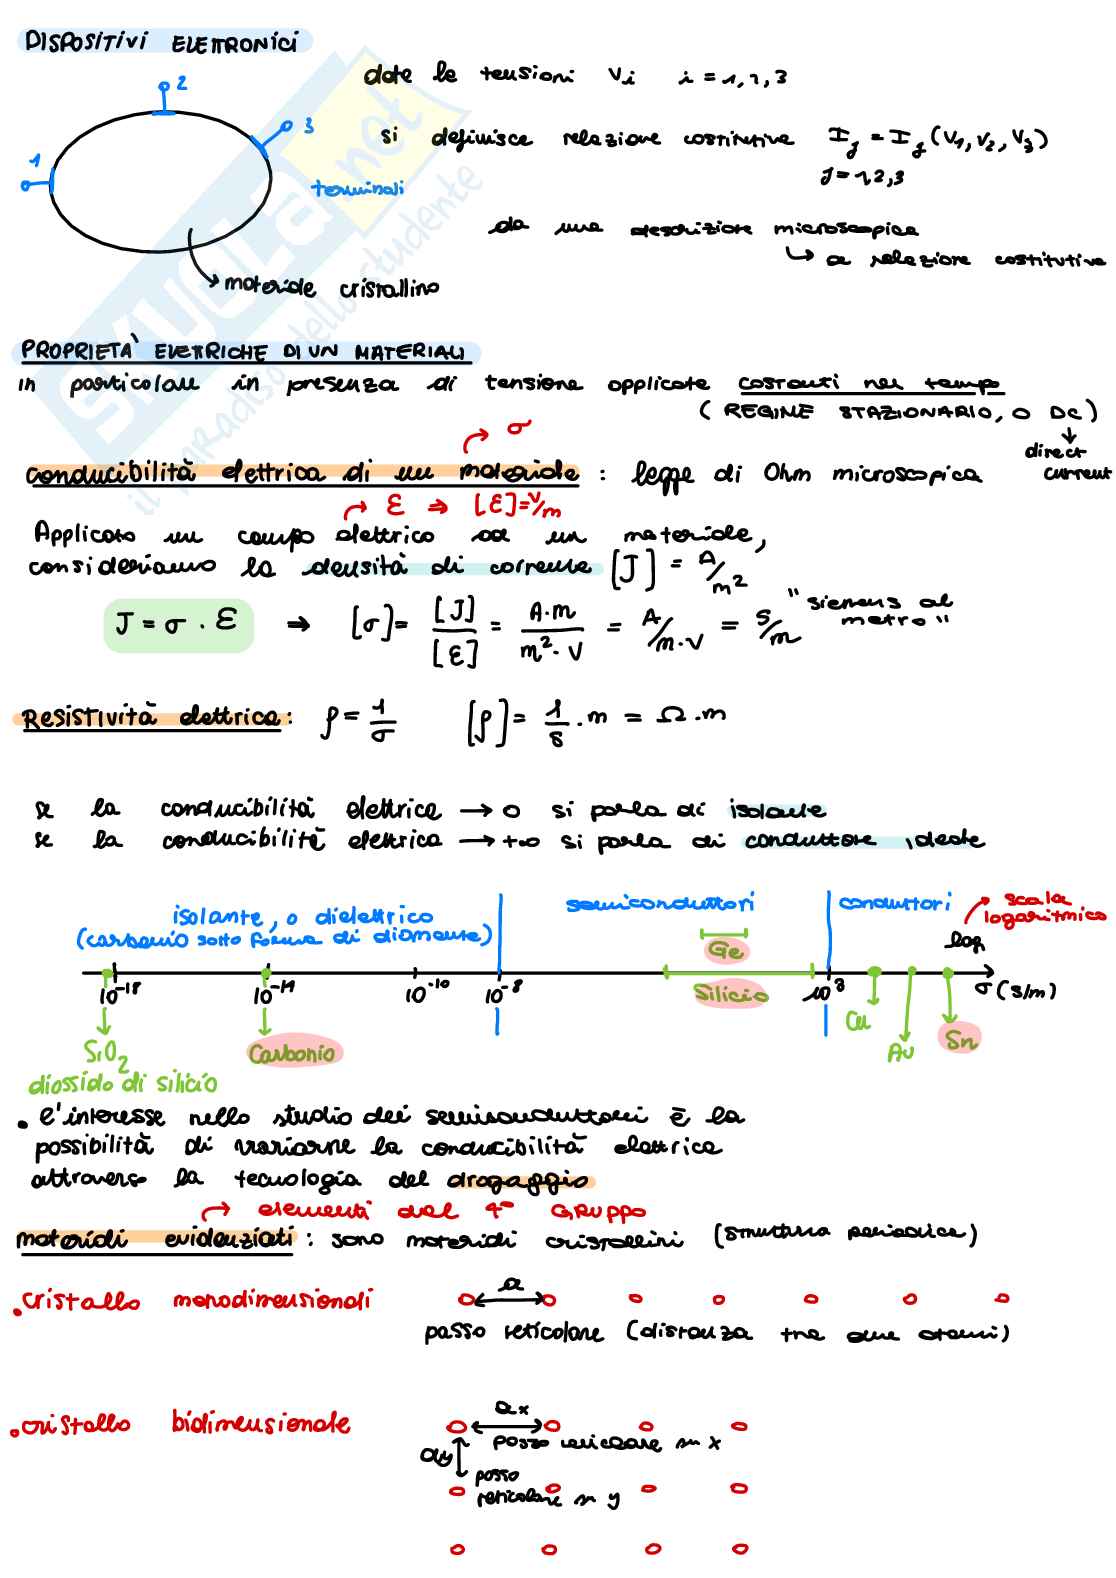 DISPOSITIVI ELETTRONICI
date le tensioni Vi i = 1, 2, 3
1
2
3
terminali
si definisce relazione costitutiva Ij = Ij (V1, V2, V3)
J = 1, 2, 3
da una descrizione microscopica
↳ a relazione costitutiva
materiale cristallino
SKUOLA.net
il paradiso dello studente
PROPRIETA' ELETTRICHE DI UN MATERIALI
in particolare in presenza di tensione applicate costanti nel tempo
( REGIME STAZIONARIO, O DC )
direct current
σ
conducibilità elettrica di un materiale : legge di Ohm microscopica
ℰ ⇒ [ℰ] = V/m
Applicato un campo elettrico ad un materiale,
consideriamo la densità di corrente [J] = A/m²
J = σ · ℰ ⇒ [σ] = [J]/[ℰ] = A·m/m²·V = A/m·V = S/m "siemens al metro"
Resistività elettrica : ρ = 1/σ [ρ] = 1/S · m = Ω · m
se la conducibilità elettrica → 0 si parla di isolante
se la conducibilità elettrica → +∞ si parla di conduttore ideale
isolante, o dielettrico
(carbonio sotto forma di diamante)
semiconduttori
conduttori
scala logaritmica
log
Ge
Silicio
10⁻¹⁸ 10⁻¹⁴ 10⁻¹⁰ 10⁻⁸ 10³ σ (S/m)
SiO₂
diossido di silicio
Carbonio
Cu
Au
Sn
• l'interesse nello studio dei semiconduttori è la
possibilità di variarne la conducibilità elettrica
attraverso la tecnologia del drogaggio
→ elementi del 4° GRUPPO
materiali evidenziati : sono materiali cristallini (struttura periodica)
• cristallo monodimensionali
a
passo reticolare (distanza tra due atomi)
• cristallo bidimensionale
ax
passo reticolare in x
ay
passo
reticolare in y